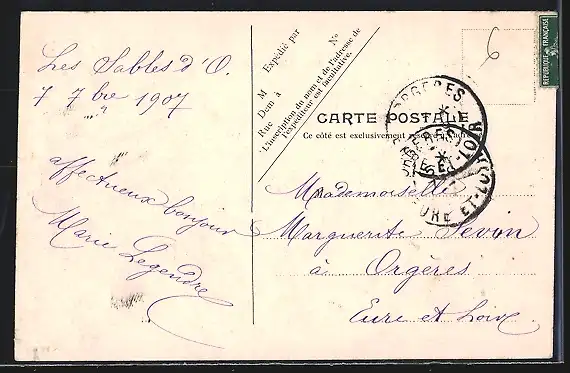 Les Sables d'O.
7 7bre 1907
affectueux bonjour
Marie Legendre
Expédié par
M
Demt à
Rue
No
L'inscription du nom et de l'adresse de
l'expéditeur est facultative.
CARTE POSTALE
Ce côté est exclusivement réservé à
6
REPUBLIQUE FRANÇAISE
ORGERES
EURE-ET-LOIR
Mademoiselle
Marguerite Sevin
à
Orgères
Eure et Loire